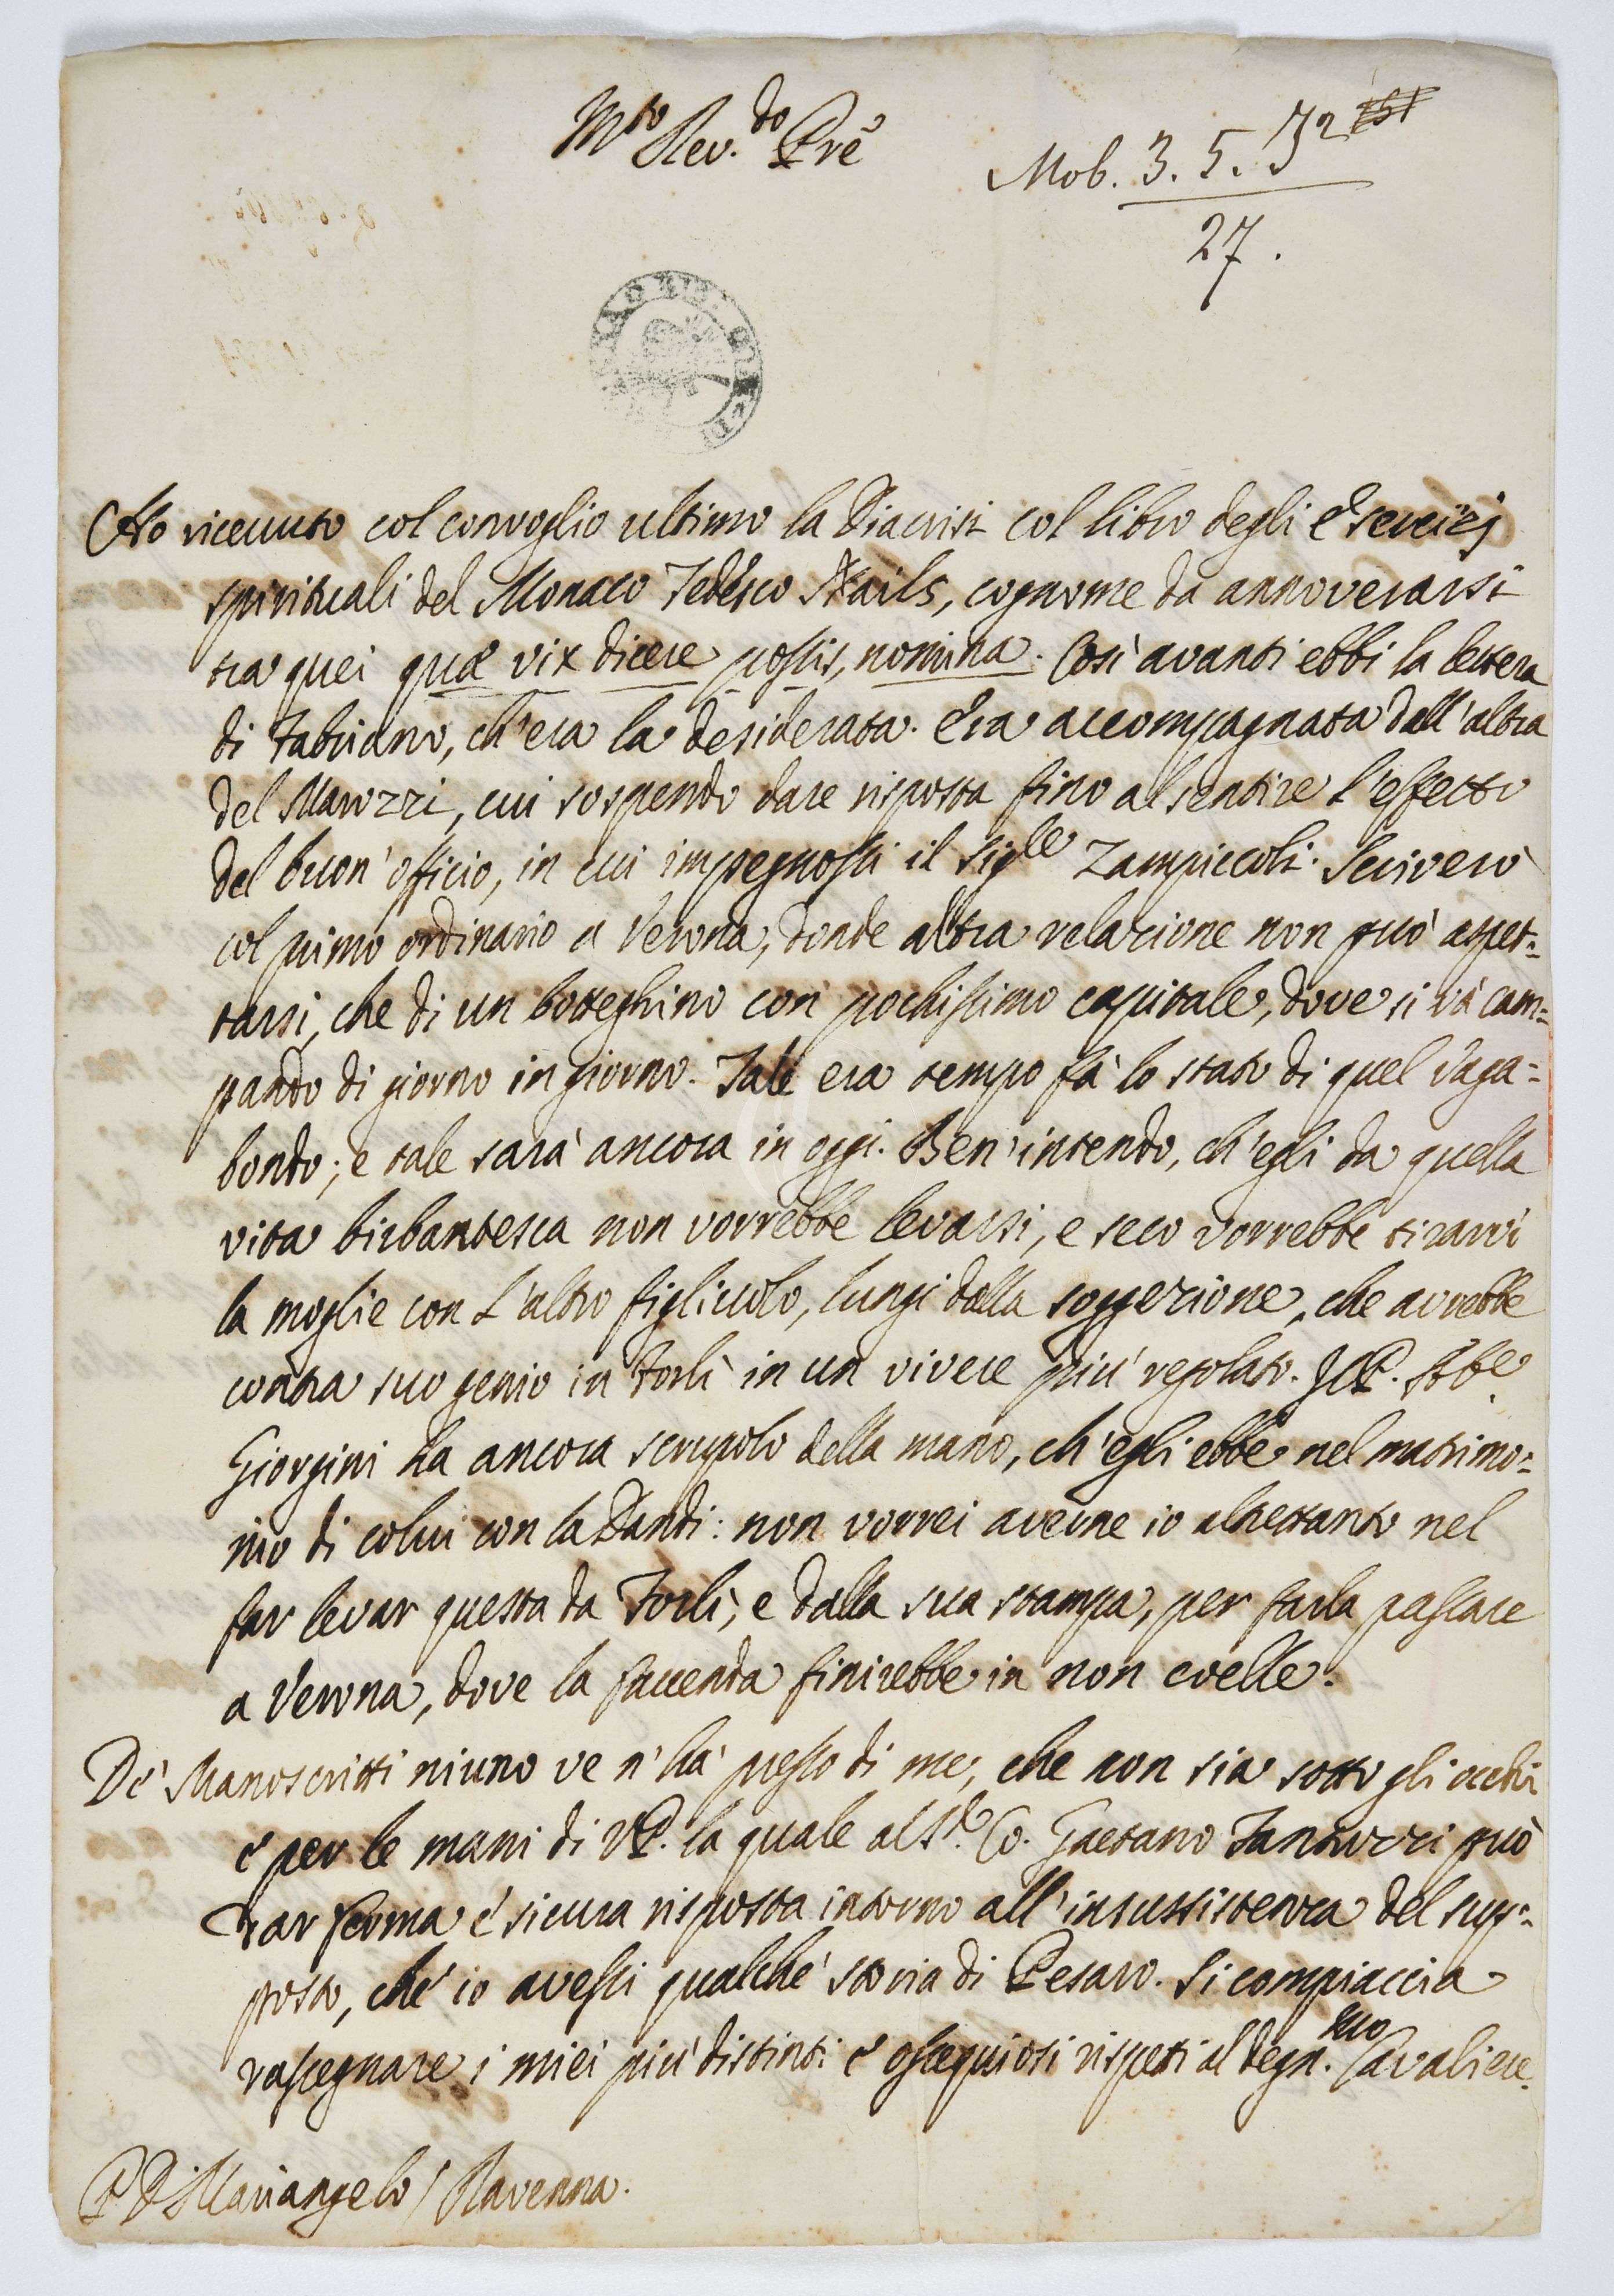 M.to Rev.do Prê
Mob. 3. 5. J2
27.
Ho ricevuto col convoglio ultimo la Diacrisi col libro degli Esercizj
spirituali del Monaco Tedesco Skails, cognome da annoverarsi
tra quei quæ vix dicere possis, nomina. Così avanti ebbi la lettera
di Fabriano, ch'era la desiderata. Era accompagnata dall'altra
del Marozzi, cui sospendo dare risposta fino al sentire l'effetto
del buon' officio, in cui impegnossi il Sig.le Zampiccoli. Scriverò
col primo ordinario a Verona, donde altra relazione non può aspet=
tarsi, che di un botteghino con pochissimo capitale, dove si và cam=
pando di giorno in giorno. Tale era tempo fà lo stato di quel Vaga=
bondo; e tale sarà ancora in oggi. Ben' intendo, ch'egli da quella
vita birbantesca non vorrebbe levarsi, e seco vorrebbe tirarvi
la moglie con l'altro figliuolo, lungi dalla soggezione, che avrebbe
contra suo genio in Forlì in un vivere più regolato. Il P. Abe
Giorgini ha ancora scrupolo della mano, ch'egli ebbe nel matrimo=
nio di colui con la Dandi: non vorrei averne io altrettanto nel
far levar questa da Forlì, e dalla sua stampa, per farla passare
a Verona, dove la faccenda finirebbe in non covelle.
De' Manoscritti niuno ve n'hà presso di me, che non sia sotto gli occhi
e per le mani di V.P. la quale al S.e Co. Gaetano Fantuzzi può
dar ferma e sicura risposta intorno all'insussistenza del sup=
posto, che io avessi qualche storia di Pesaro. Si compiaccia
rassegnare i miei più distinti e ossequiosi rispetti al degn.mo Cavaliere.
P. D. Mariangelo / Ravenna.